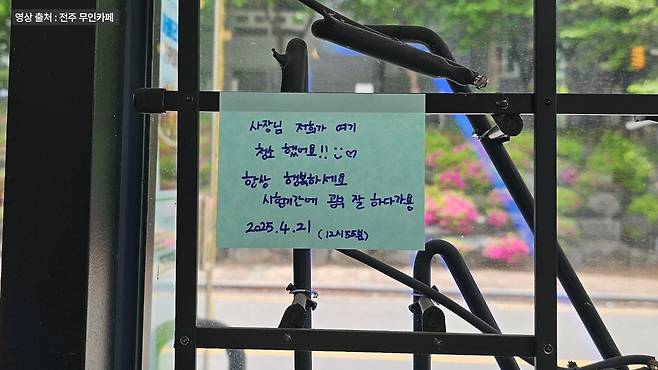 영상 출처 : 전주 무인카페
사장님 저희가 여기
청소 했어요!! ♡
항상 행복하세요
시험기간에 공부 잘 하다가용
2025.4.21 (12시55분)